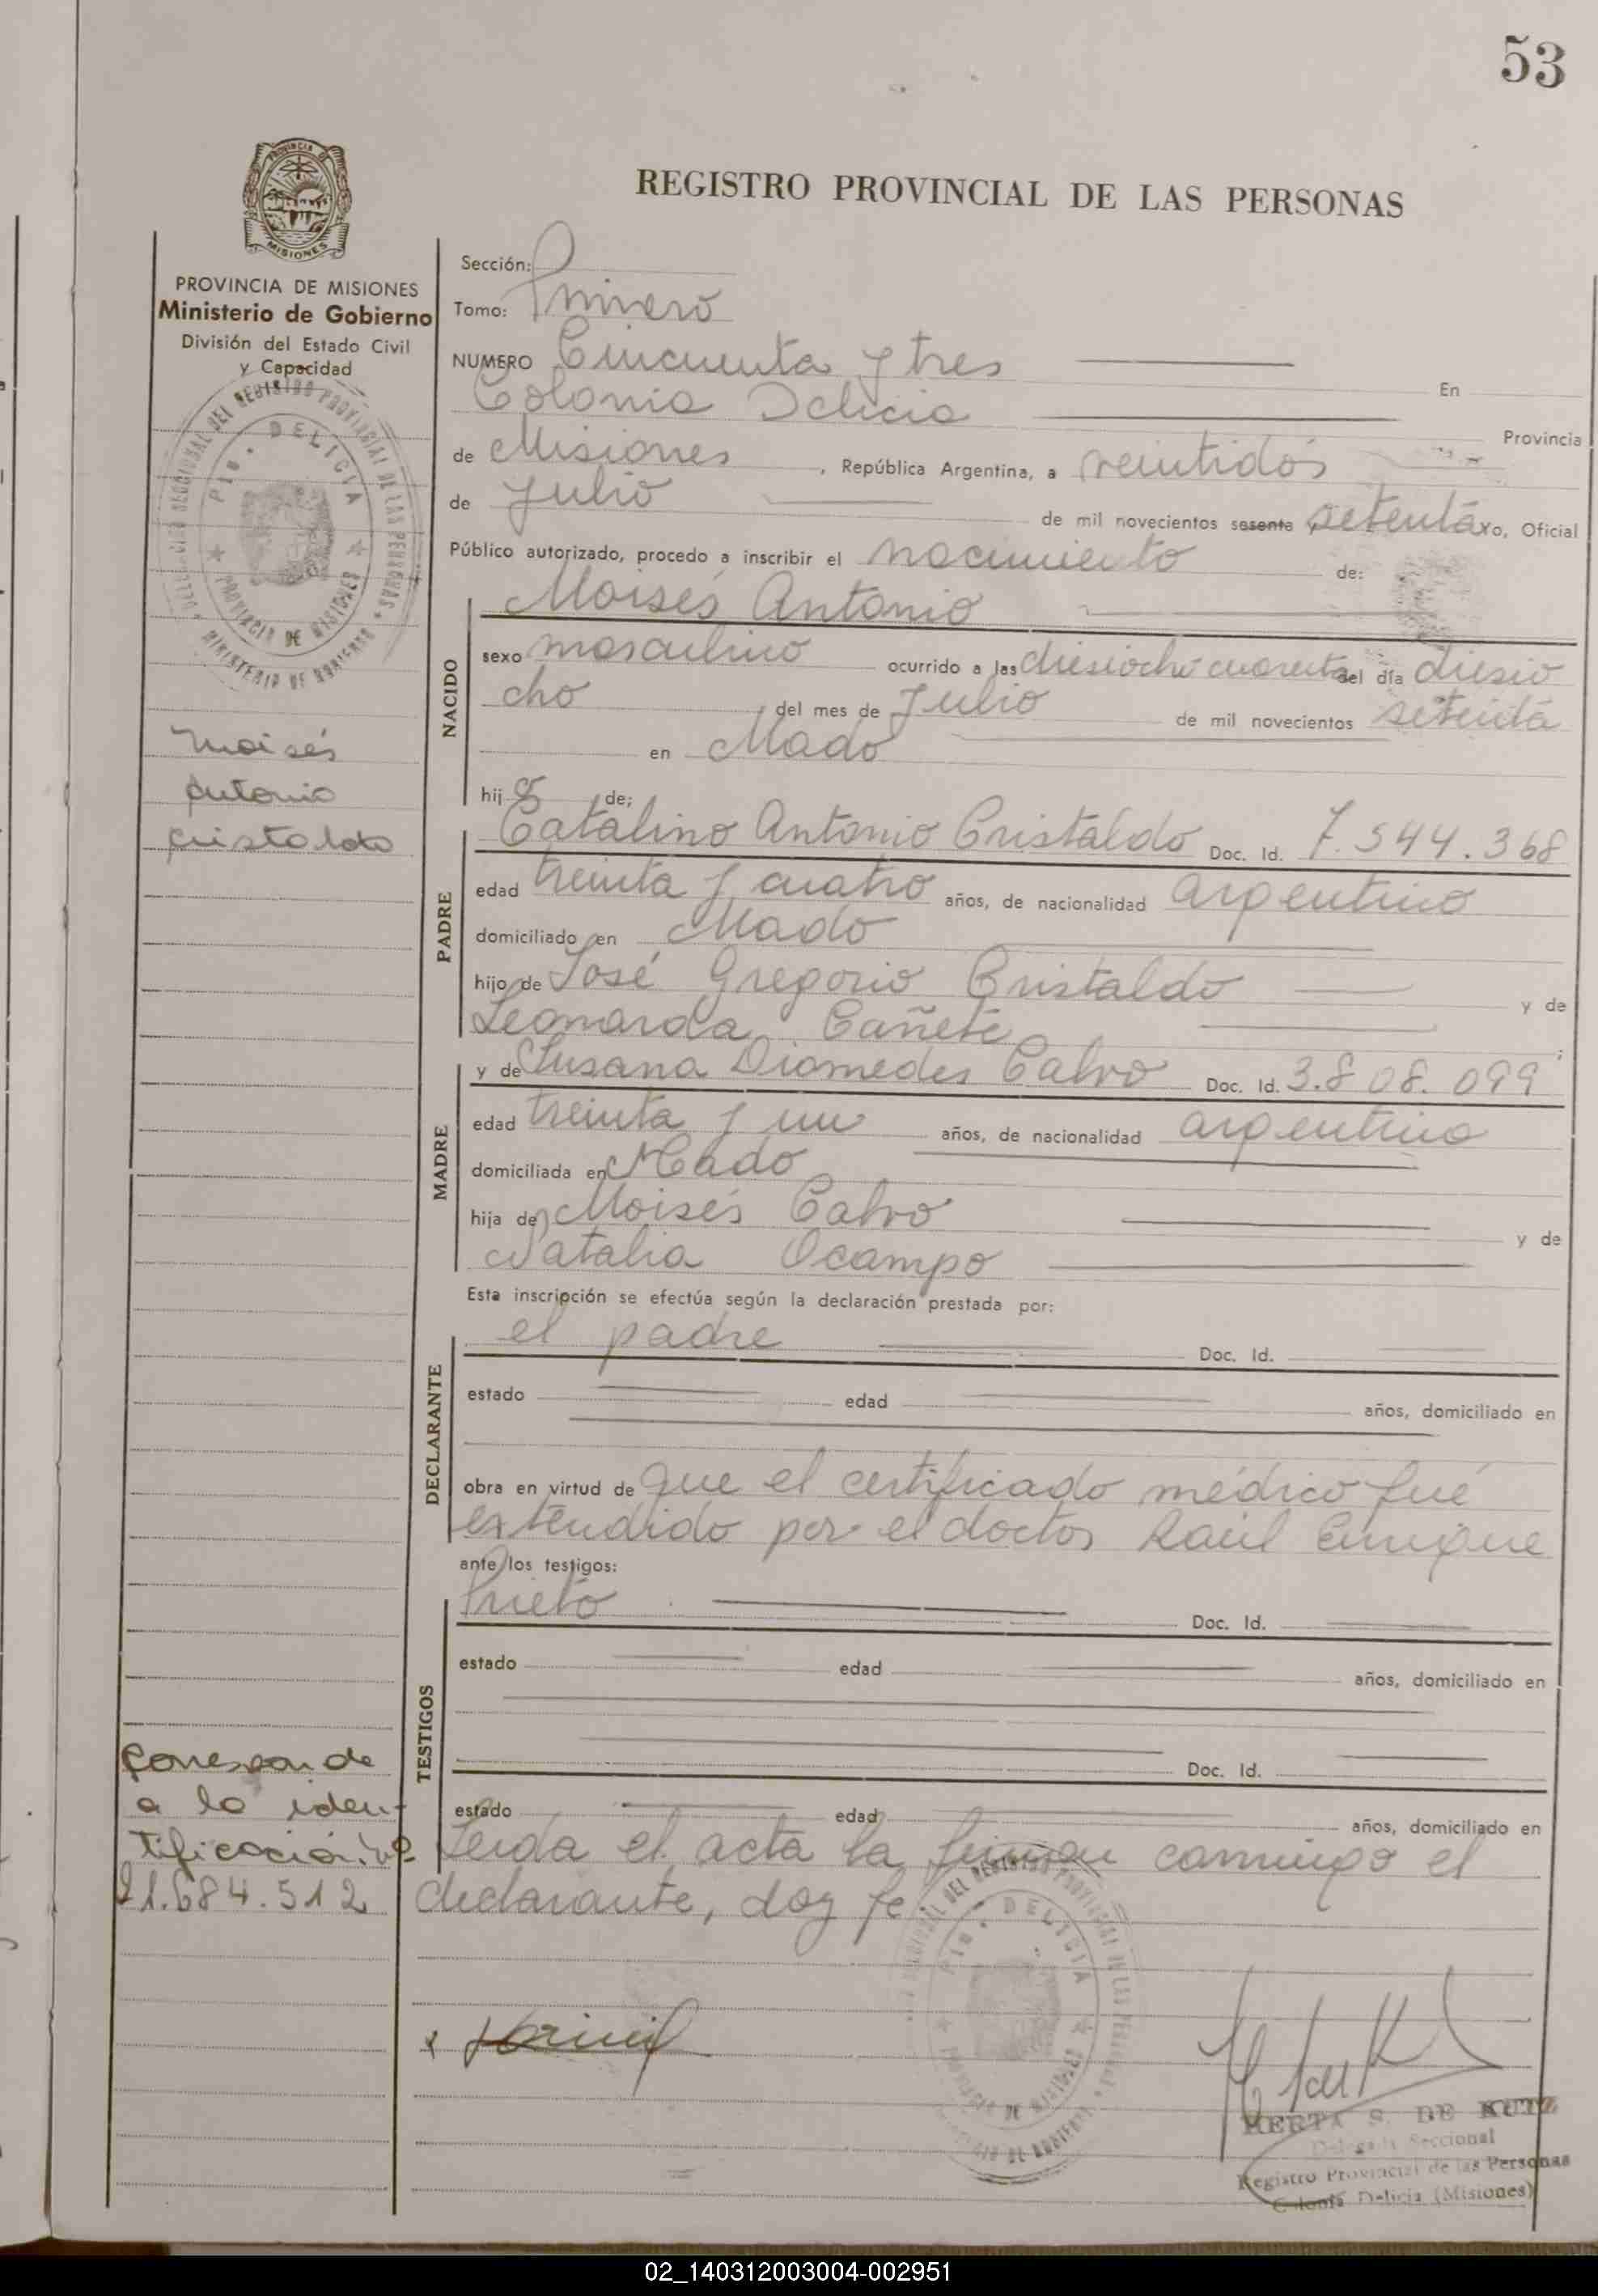 53
PROVINCIA
MISIONES
REGISTRO PROVINCIAL DE LAS PERSONAS
PROVINCIA DE MISIONES
Ministerio de Gobierno
División del Estado Civil
y Capacidad
Sección:
Tomo: Primero
NUMERO Cincuenta y tres En
Colonia Delicia Provincia
de Misiones, República Argentina, a veintidós
de Julio de mil novecientos sesenta setenta yo, Oficial
Público autorizado, procedo a inscribir el nacimiento de:
NACIDO
Moisés Antonio
sexo masculino ocurrido a las diesiocho cuarenta del día diesio
cho del mes de Julio de mil novecientos setenta
en Mado
hijo de:
Moisés
Antonio
Cristaldo
PADRE
Catalino Antonio Cristaldo Doc. Id. 7.544.368
edad treinta y cuatro años, de nacionalidad argentino
domiciliado en Mado
hijo de José Gregorio Cristaldo y de
Leonarda Cañete ;
MADRE
y de Susana Diomedes Calvo Doc. Id. 3.808.099
edad treinta y un años, de nacionalidad argentino
domiciliada en Mado
hija de Moisés Calvo y de
Natalia Ocampo
Esta inscripción se efectúa según la declaración prestada por:
DECLARANTE
el padre Doc. Id.
estado edad años, domiciliado en
obra en virtud de que el certificado médico fué
extendido por el doctor Raúl Enrique
ante los testigos:
TESTIGOS
Prieto Doc. Id.
estado edad años, domiciliado en
Doc. Id.
estado edad años, domiciliado en
Leida el acta la firman conmigo el
declarante, doy fe
Corresponde
a la iden-
tificación Nº
21.684.512
DELICIA
PROVINCIA DE MISIONES
MINISTERIO DE GOBIERNO
HERTA S. DE KUTZ
Delegada Seccional
Registro Provincial de las Personas
Colonia Delicia (Misiones)
02_140312003004-002951